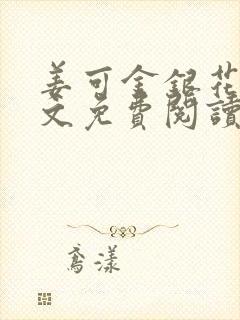 姜可金銀花
文免費閱讀
鳶漾